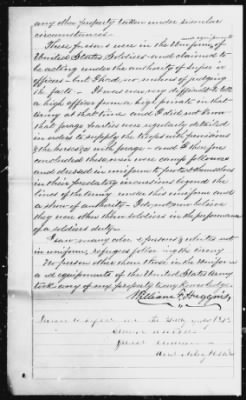 any other property taken under similar
circumstances.
These persons were in the Uniform and equipments of
United States Soldiers and claimed to
be acting under the authority of superior
officers - but I had no means of judging
the facts - It was very difficult to tell
a high officer from a high private in that
army at that time and I did not know
that forage parties were regularly detailed
in order to supply the troops with provisions
& the horses with forage - and I therefore
concluded these men were camp followers
and dressed in uniform to protect themselves
in their predatory incursions beyond the
lines of the army under this uniform and
a show of authority - I do not now believe
they were other than soldiers in the performance
of a soldiers duty.
I saw many other persons & whites not
in uniform, refugees following the army
No person other than those in the Uniform
and equipments of the United States Army
took any of my property to my knowledge.
William F. Huggins